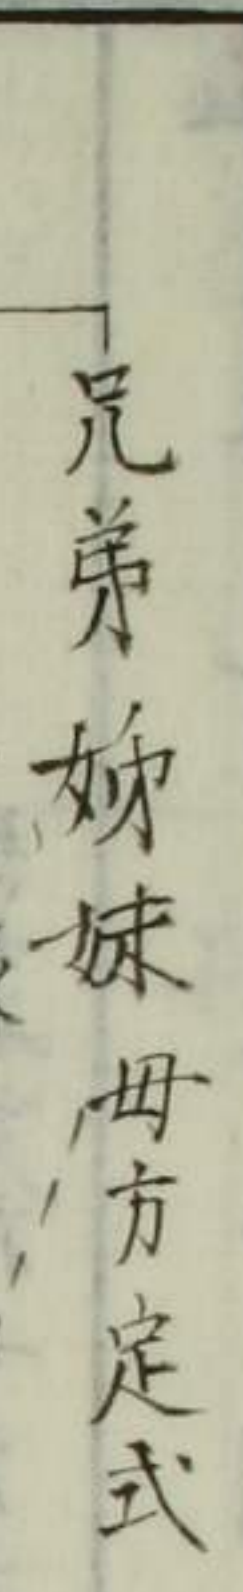 兄弟姊妹母方定式